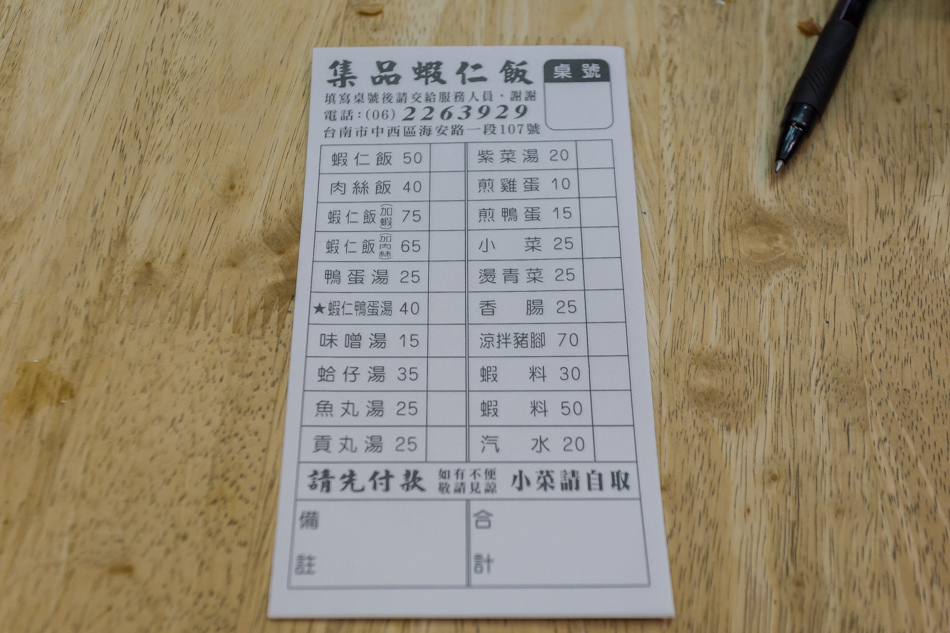 集品蝦仁飯
桌號
填寫桌號後請交給服務人員,謝謝
電話:(06) 2263929
台南市中西區海安路一段107號
蝦仁飯 50
紫菜湯 20
肉絲飯 40
煎雞蛋 10
蝦仁飯(加蝦) 75
煎鴨蛋 15
蝦仁飯(加肉絲) 65
小菜 25
鴨蛋湯 25
燙青菜 25
★蝦仁鴨蛋湯 40
香腸 25
味噌湯 15
涼拌豬腳 70
蛤仔湯 35
蝦料 30
魚丸湯 25
蝦料 50
貢丸湯 25
汽水 20
請先付款 如有不便敬請見諒 小菜請自取
備註
合計